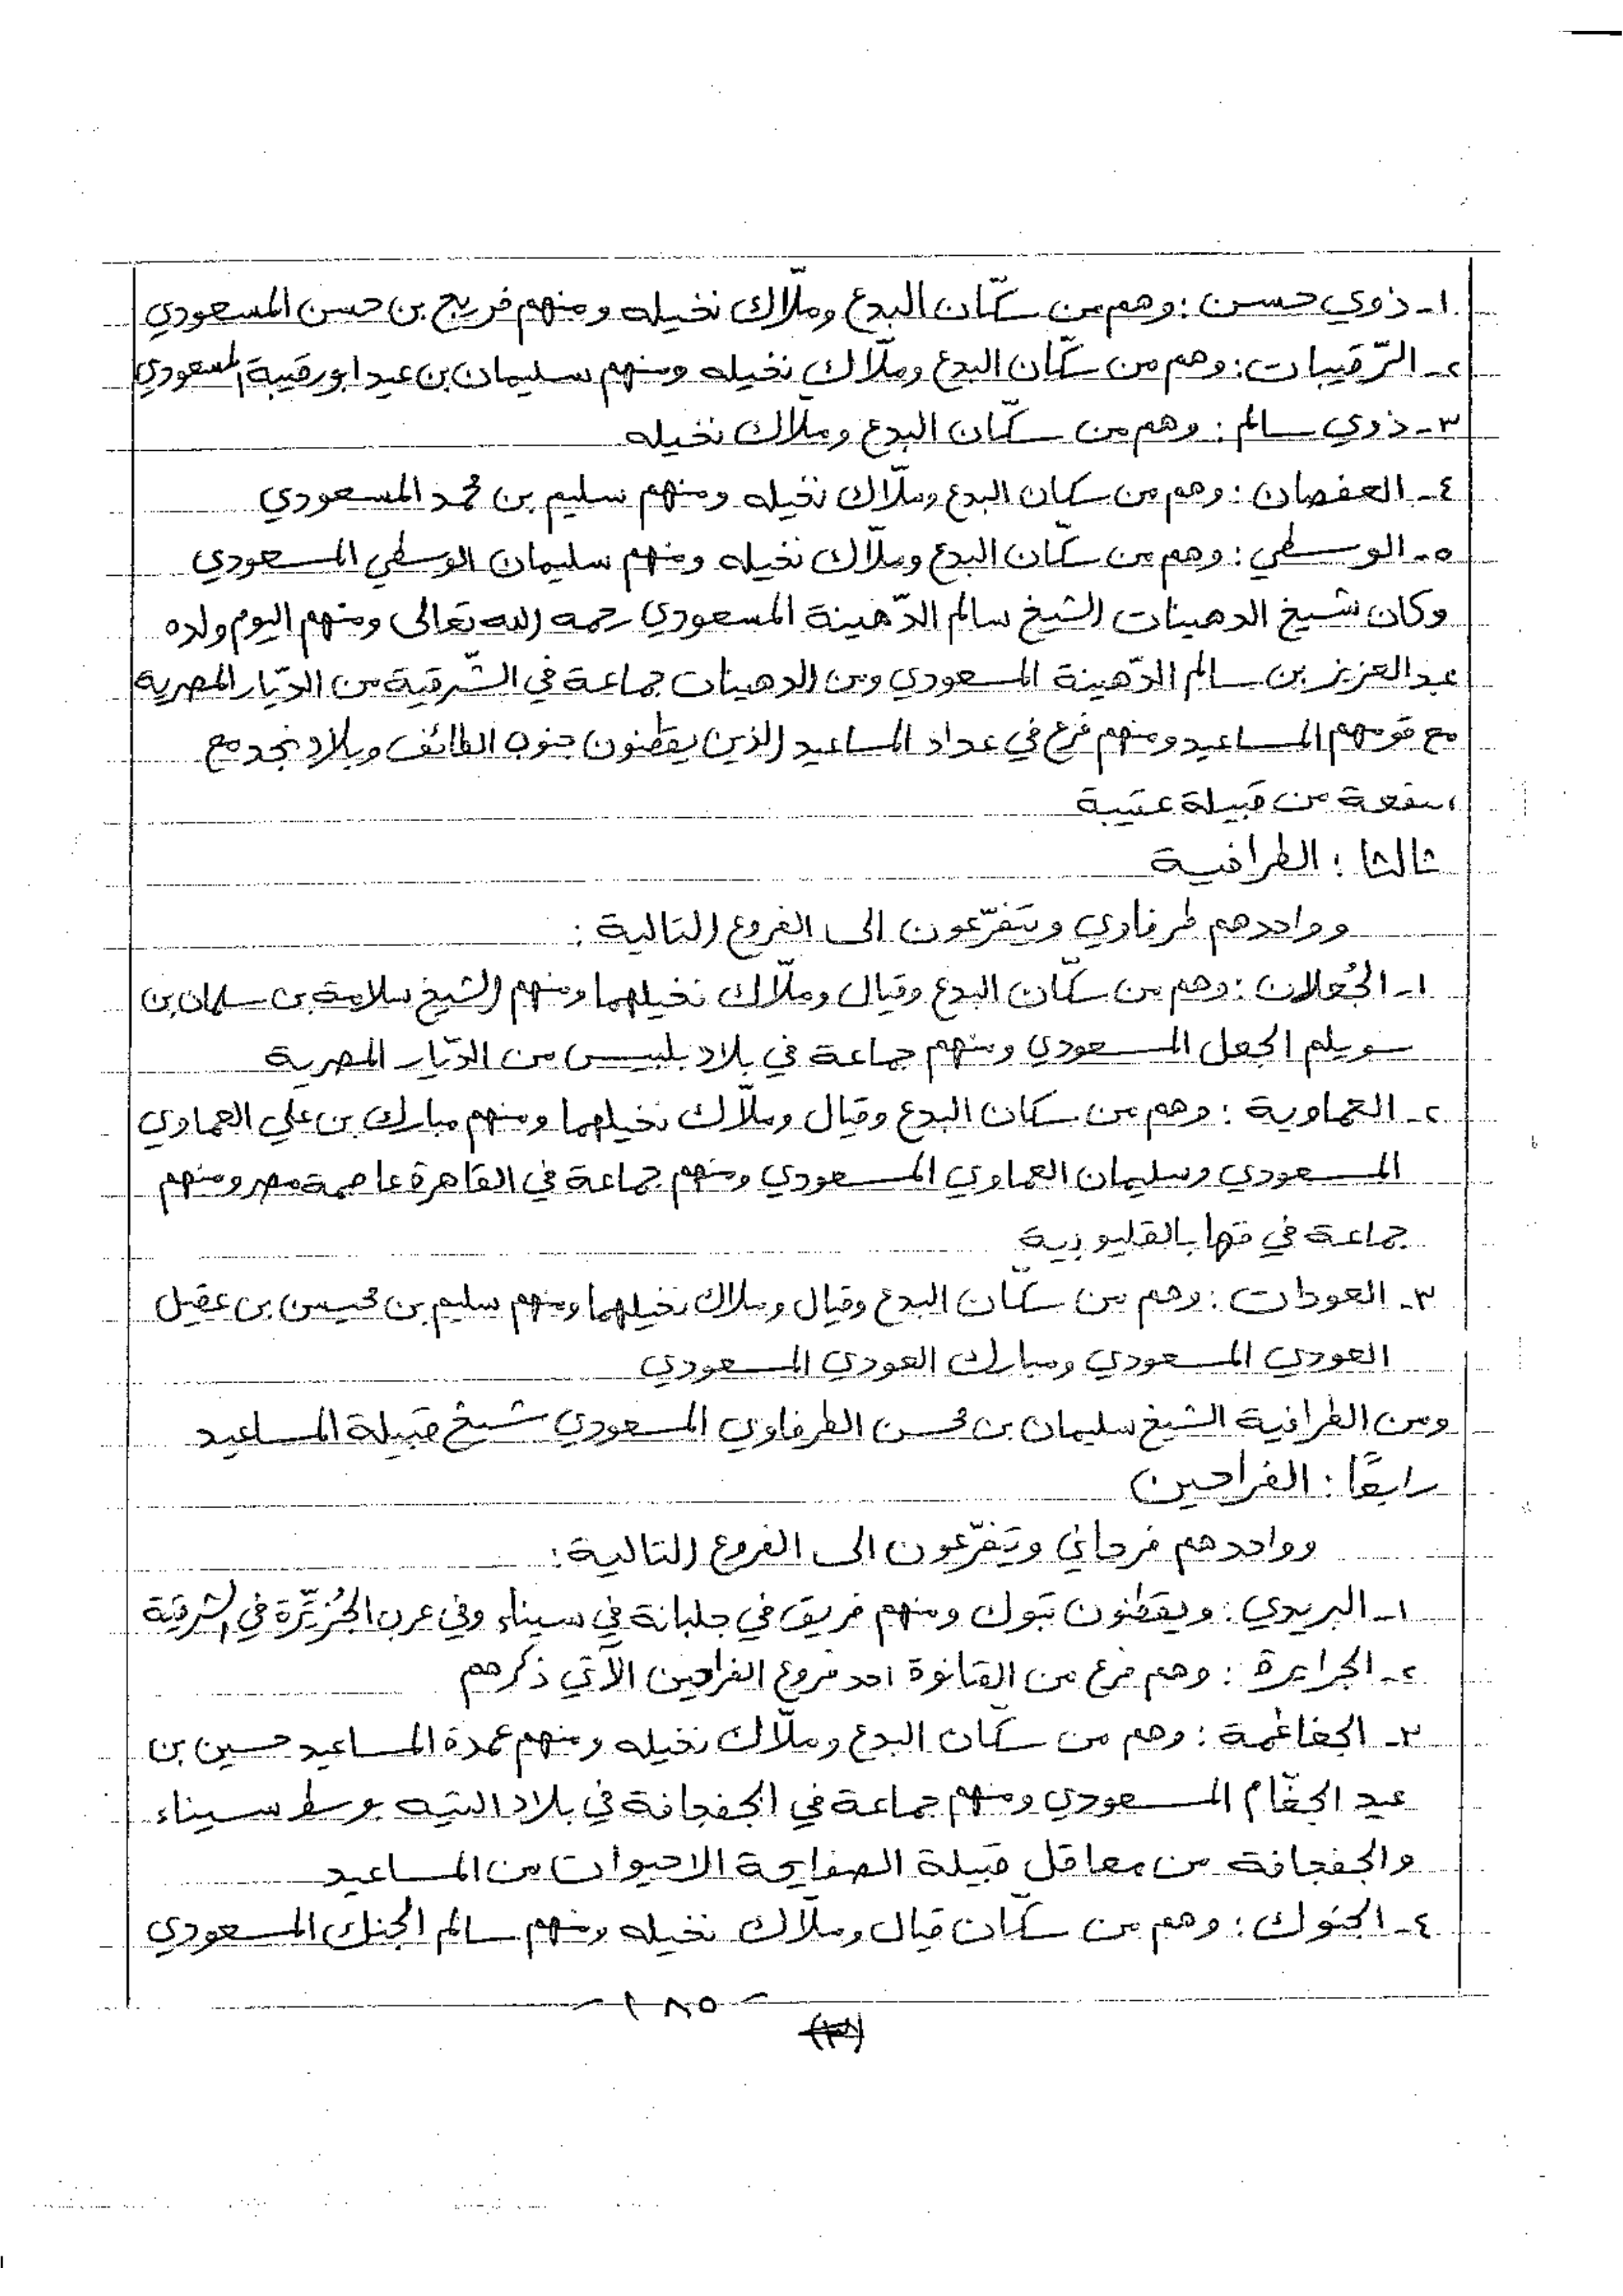 ١- ذوي حسن : وهم من سكّان البدع وملّاك نخيله ومنهم فريج بن حسن المسعودي
٢- الرّقيبات : وهم من سكّان البدع وملّاك نخيله ومنهم سليمان بن عيد ابو رقيبة المسعودي
٣- ذوي سالم : وهم من سكّان البدع وملّاك نخيله
٤- العفصان : وهم من سكان البدع وملّاك نخيله ومنهم سليم بن محمد المسعودي
٥- الوسطي : وهم من سكّان البدع وملّاك نخيله ومنهم سليمان الوسطي المسعودي
وكان شيخ الدهينات الشيخ سالم الدّهينة المسعودي رحمه الله تعالى ومنهم اليوم ولده
عبدالعزيز بن سالم الدّهينة المسعودي ومن الدهينات جماعة في الشّرقية من الديّار المصرية
مع قومهم المساعيد ومنهم فرع في عداد المساعيد الذين يقطنون جنوب الطائف وبلاد نجد مع
من قبيلة عتيبة
ثالثا : الطرافية
وواحدهم طرفاوي ويتفرّعون الى الفروع التالية :
١- الجُعلان : وهم من سكّان البدع وقيال وملّاك نخيلهما ومنهم الشيخ سلامة بن سلمان بن
سويلم الجعل المسعودي ومنهم جماعة في بلاد بلبيس من الديّار المصرية
٢- العماوية : وهم من سكان البدع وقيال وملّاك نخيلهما ومنهم مبارك بن علي العماوي
المسعودي وسليمان العماوي المسعودي ومنهم جماعة في القاهرة عاصمة مصر ومنهم
جماعة في قها بالقليوبية
٣- العودات : وهم من سكّان البدع وقيال وملاك نخيلهما ومنهم سليم بن محيسن بن عقيل
العودي المسعودي ومبارك العودي المسعودي
ومن الطرافية الشيخ سليمان بن محسن الطرفاوي المسعودي شيخ قبيلة المساعيد
رابعًا : الفراحين
وواحدهم فرحاني ويتفرّعون الى الفروع التالية :
١- البريدي : ويقطنون تبوك ومنهم فريق في جلبانة في سيناء وفي عرب الجُزيّرة في الشرقية
٢- الجرايرة : وهم فرع من القانوة احد فروع الفراحين الآتي ذكرهم
٣- الجغاغمة : وهم من سكّان البدع وملّاك نخيله ومنهم عمدة المساعيد حسين بن
عيد الجغّام المسعودي ومنهم جماعة في الجفجافة في بلاد التيه بوسط سيناء
والجفجافة من معاقل قبيلة الصفايحة الاحيوات من المساعيد
٤- الجنوك : وهم من سكّان قيال وملّاك نخيله ومنهم سالم الجنك المسعودي
- ١٨٥ -